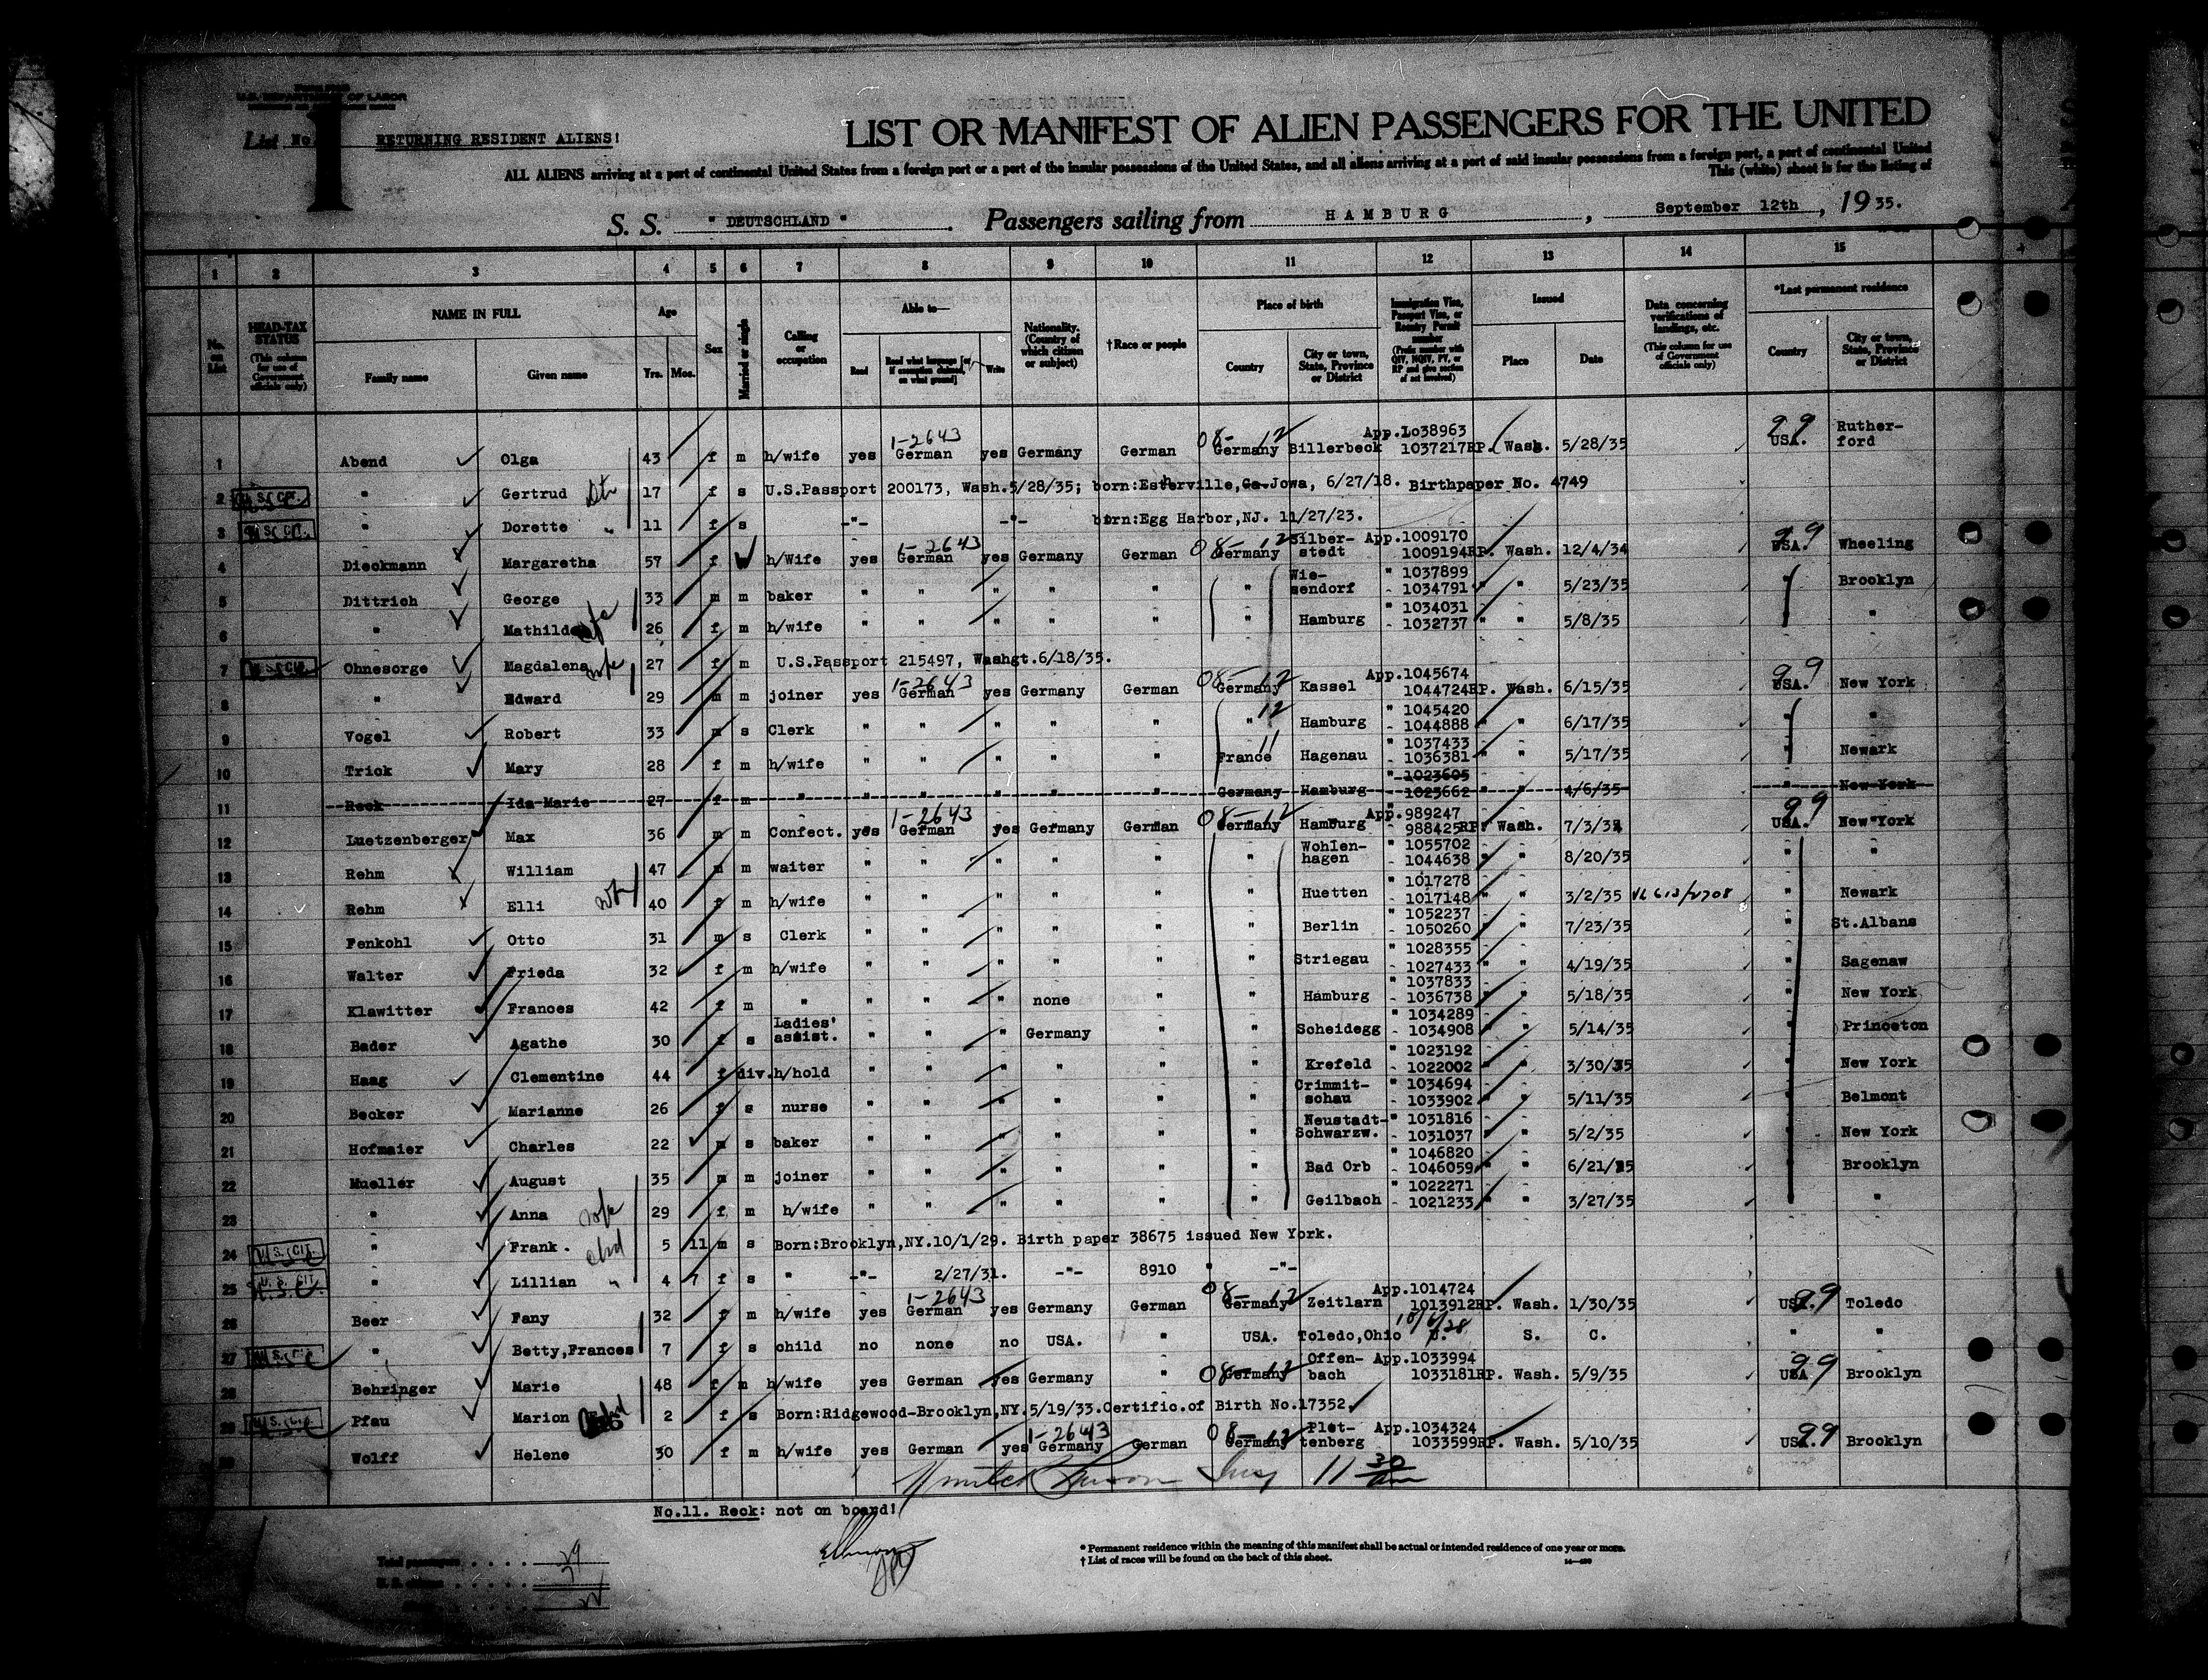 U.S. DEPARTMENT OF LABOR
List No. I RETURNING RESIDENT ALIENS!
LIST OR MANIFEST OF ALIEN PASSENGERS FOR THE UNITED
ALL ALIENS arriving at a port of continental United States from a foreign port or a port of the insular possessions of the United States, and all aliens arriving at a port of said insular possessions from a foreign port, a port of continental United
This (white) sheet is for the listing of
S. S. " DEUTSCHLAND " . Passengers sailing from HAMBURG , September 12th , 19 35.
1 2 3 4 5 6 7 8 9 10 11 12 13 14 15
No. on List
HEAD-TAX STATUS (This column for use of Government officials only)
NAME IN FULL Family name Given name
Age Yrs. Mos.
Sex
Married or single
Calling or occupation
Able to— Read Read what language [or, if exemption claimed, on what ground] Write
Nationality. (Country of which citizen or subject)
†Race or people
Place of birth Country City or town, State, Province or District
Immigration Visa, Passport Visa, or Reentry Permit number (Prefix number with QIV, NQIV, PV, or RP and give section of act involved)
Issued Place Date
Data concerning verifications of landings, etc. (This column for use of Government officials only)
*Last permanent residence Country City or town, State, Province or District
1 Abend Olga 43 f m h/wife yes 1-2643 German yes Germany German 08-12 Germany Billerbeck App.1o38963 1037217RP. Wash. 5/28/35 99 USA. Rutherford
2 U.S. CIT. " Gertrud 17 f s U.S.Passport 200173, Wash.5/28/35; born:Estherville,Ga.Jowa, 6/27/18. Birthpaper No. 4749
3 U.S. CIT. " Dorette " 11 f s -"- -"- born:Egg Harbor,NJ. 11/27/23.
4 Dieckmann Margaretha 57 f W h/Wife yes 1-2643 German yes Germany German 08-12 Germany Silberstedt App.1009170 1009194RP. Wash. 12/4/34 99 USA. Wheeling
5 Dittrich George 33 m m baker " " " " " " Wiesendorf " 1037899 - 1034791 " " 5/23/35 " Brooklyn
6 " Mathilde wife 26 f m h/wife " " " " " " Hamburg " 1034031 - 1032737 " " 5/8/35 " "
7 U.S. CIT. Ohnesorge Magdalena wife 27 f m U.S.Passport 215497, Washgt.6/18/35.
8 " Edward 29 m m joiner yes 1-2643 German yes Germany German 08-12 Germany Kassel App.1045674 1044724RP. Wash. 6/15/35 99 USA. New York
9 Vogel Robert 33 m s Clerk " " " " " " 12 Hamburg " 1045420 - 1044888 " " 6/17/35 " "
10 Trick Mary 28 f m h/wife " " " " " France 11 Hagenau " 1037433 - 1036381 " " 5/17/35 " Newark
11 Reck Ida Marie 27 f m " " " " " " Germany Hamburg " 1023605 1023662 " " 4/6/35 " New York
12 Luetzenberger Max 36 m m Confect. yes 1-2643 German yes Germany German 08-12 Germany Hamburg App. 989247 988425RP. Wash. 7/3/34 99 USA. New York
13 Rehm William 47 m m waiter " " " " " " Wohlenhagen " 1055702 - 1044638 " " 8/20/35 " "
14 Rehm Elli wife 40 f m h/wife " " " " " " Huetten " 1017278 - 1017148 " " 3/2/35 " Newark
15 Fenkohl Otto 31 m s Clerk " " " " " " Berlin " 1052237 - 1050260 " " 7/23/35 " St.Albans
16 Walter Frieda 32 f m h/wife " " " " " " Striegau " 1028355 - 1027433 " " 4/19/35 " Sagenaw
17 Klawitter Frances 42 f m " " " " none " " Hamburg " 1037833 - 1036738 " " 5/18/35 " New York
18 Bader Agathe 30 f s Ladies' assist. " " " Germany " " Scheidegg " 1034289 - 1034908 " " 5/14/35 " Princeton
19 Haag Clementine 44 f div. h/hold " " " " " " Krefeld " 1023192 - 1022002 " " 3/30/35 " New York
20 Becker Marianne 26 f s nurse " " " " " " Crimmitschau " 1034694 - 1033902 " " 5/11/35 " Belmont
21 Hofmaier Charles 22 m s baker " " " " " " Neustadt-Schwarzw. " 1031816 - 1031037 " " 5/2/35 " New York
22 Mueller August 35 m m joiner " " " " " " Bad Orb " 1046820 - 1046059 " " 6/21/35 " Brooklyn
23 " Anna wife 29 f m h/wife " " " " " " Geilbach " 1022271 - 1021233 " " 3/27/35 " "
24 U.S. CIT. " Frank. chd 5 11 m s Born:Brooklyn,NY.10/1/29. Birth paper 38675 issued New York.
25 U.S. CIT. " Lillian " 4 7 f s " -"- 2/27/31. -"- 8910 " -"-
26 Beer Fany 32 f m h/wife yes 1-2643 German yes Germany German 08-12 Germany Zeitlarn App.1014724 1013912RP. Wash. 1/30/35 99 USA. Toledo
27 U.S. CIT. " Betty,Frances 7 f s child no none no USA. " USA. Toledo,Ohio 10/6/28 U. S. C. " "
28 Behringer Marie 48 f m h/wife yes German yes Germany " 08-12 Germany Offenbach App.1033994 1033181RP. Wash. 5/9/35 99 USA Brooklyn
29 U.S. CIT. Pfau Marion 2 f s Born:Ridgewood-Brooklyn,NY.5/19/33.Certific.of Birth No.17352.
30 Wolff Helene 30 f m h/wife yes German yes 1-2643 Germany German 08-12 Germany Plettenberg App.1034324 1033599RP. Wash. 5/10/35 99 USA. Brooklyn
Insp 11 30 am
No.11. Reck: not on board!
* Permanent residence within the meaning of this manifest shall be actual or intended residence of one year or more.
† List of races will be found on the back of this sheet.
Total passengers . . . . . 29
U. S. citizens . . . . . 7